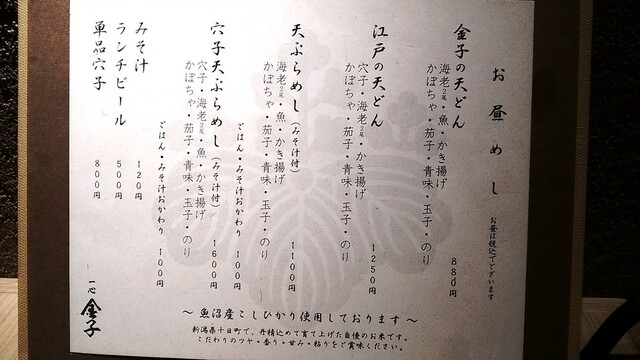 お昼めし
お昼は税込でございます
金子の天どん
海老2尾・魚・かき揚げ
かぼちゃ・茄子・青味・玉子・のり
880円
江戸の天どん
穴子・海老2尾・かき揚げ
かぼちゃ・茄子・青味・玉子・のり
1250円
天ぷらめし(みそ汁付)
海老2尾・魚・かき揚げ
かぼちゃ・茄子・青味・玉子・のり
1100円
ごはん・みそ汁おかわり 100円
穴子天ぷらめし(みそ汁付)
穴子・海老2尾・魚・かき揚げ
かぼちゃ・茄子・青味・玉子・のり
1600円
ごはん・みそ汁おかわり 100円
みそ汁 120円
ランチビール 500円
単品穴子 800円
～魚沼産こしひかり使用しております～
新潟県十日町で、丹精込めて育て上げた自慢のお米です。
こだわりのツヤ・香り・甘み・粘りをご賞味ください。
一心
金子